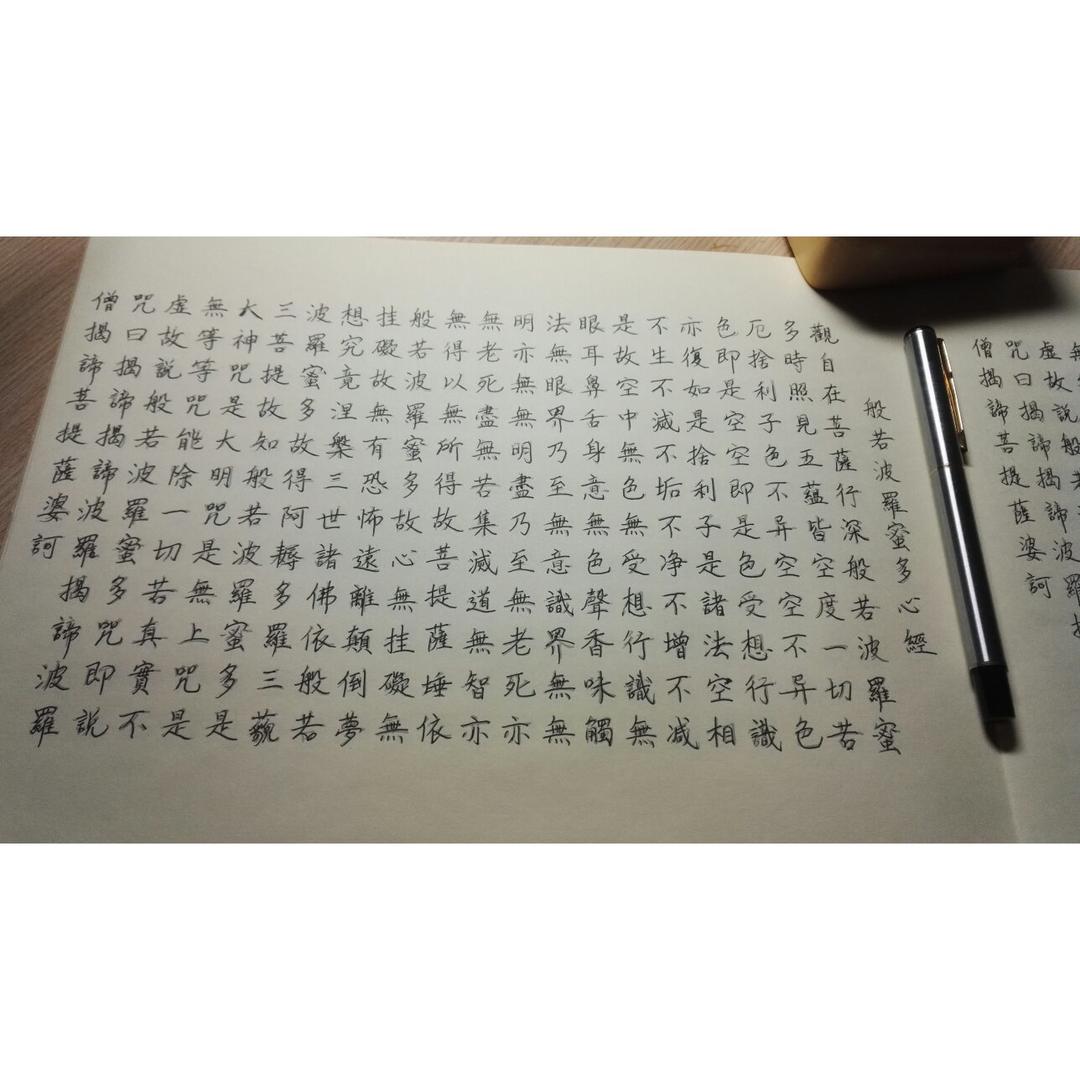 虛故說般
咒曰揭諦揭諦波羅揭
僧揭諦菩提薩婆訶
般若波羅蜜多心經
觀自在菩薩行深般若波羅蜜
多時照見五蘊皆空度一切苦
厄捨利子色不異空空不異色
色即是空空即是色受想行識
亦復如是捨利子是諸法空相
不生不滅不垢不净不增不減
是故空中無色無受想行識無
眼耳鼻舌身意無色聲香味觸
法無眼界乃至無意識界無無
明亦無無明盡乃至無老死亦
無老死盡無苦集滅道無智亦
無得以無所得故菩提薩埵依
般若波羅蜜多故心無挂礙無
挂礙故無有恐怖遠離顛倒夢
想究竟涅槃三世諸佛依般若
波羅蜜多故得阿耨多羅三藐
三菩提故知般若波羅蜜多是
大神咒是大明咒是無上咒是
無等等咒能除一切苦真實不
虛故說般若波羅蜜多咒即說
咒曰揭諦揭諦波羅揭諦波羅
僧揭諦菩提薩婆訶